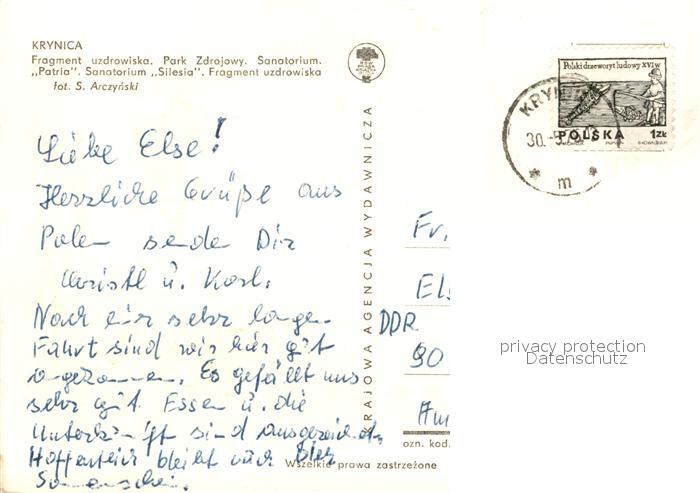 KRYNICA
Fragment uzdrowiska. Park Zdrojowy. Sanatorium.
„Patria”. Sanatorium „Silesia”. Fragment uzdrowiska
fot. S. Arczyński
Liebe Else!
Herzliche Grüße aus
Polen sende Dir
Christl u. Karl.
Nach einer sehr langen
Fahrt sind wir hier gut
angekommen. Es gefällt uns
sehr gut Essen u. die
Unterkünft sind ausgezeichnet.
Hoffentlich bleibt auch der
Sonnenschein.
KRAJOWA AGENCJA WYDAWNICZA
Polski drzeworyt ludowy XVI w
POLSKA 1ZŁ
KRYNI
30.
m
Fr.
Els
DDR
90
privacy protection
Datenschutz
ozn. kod.
Wszelkie prawa zastrzeżone